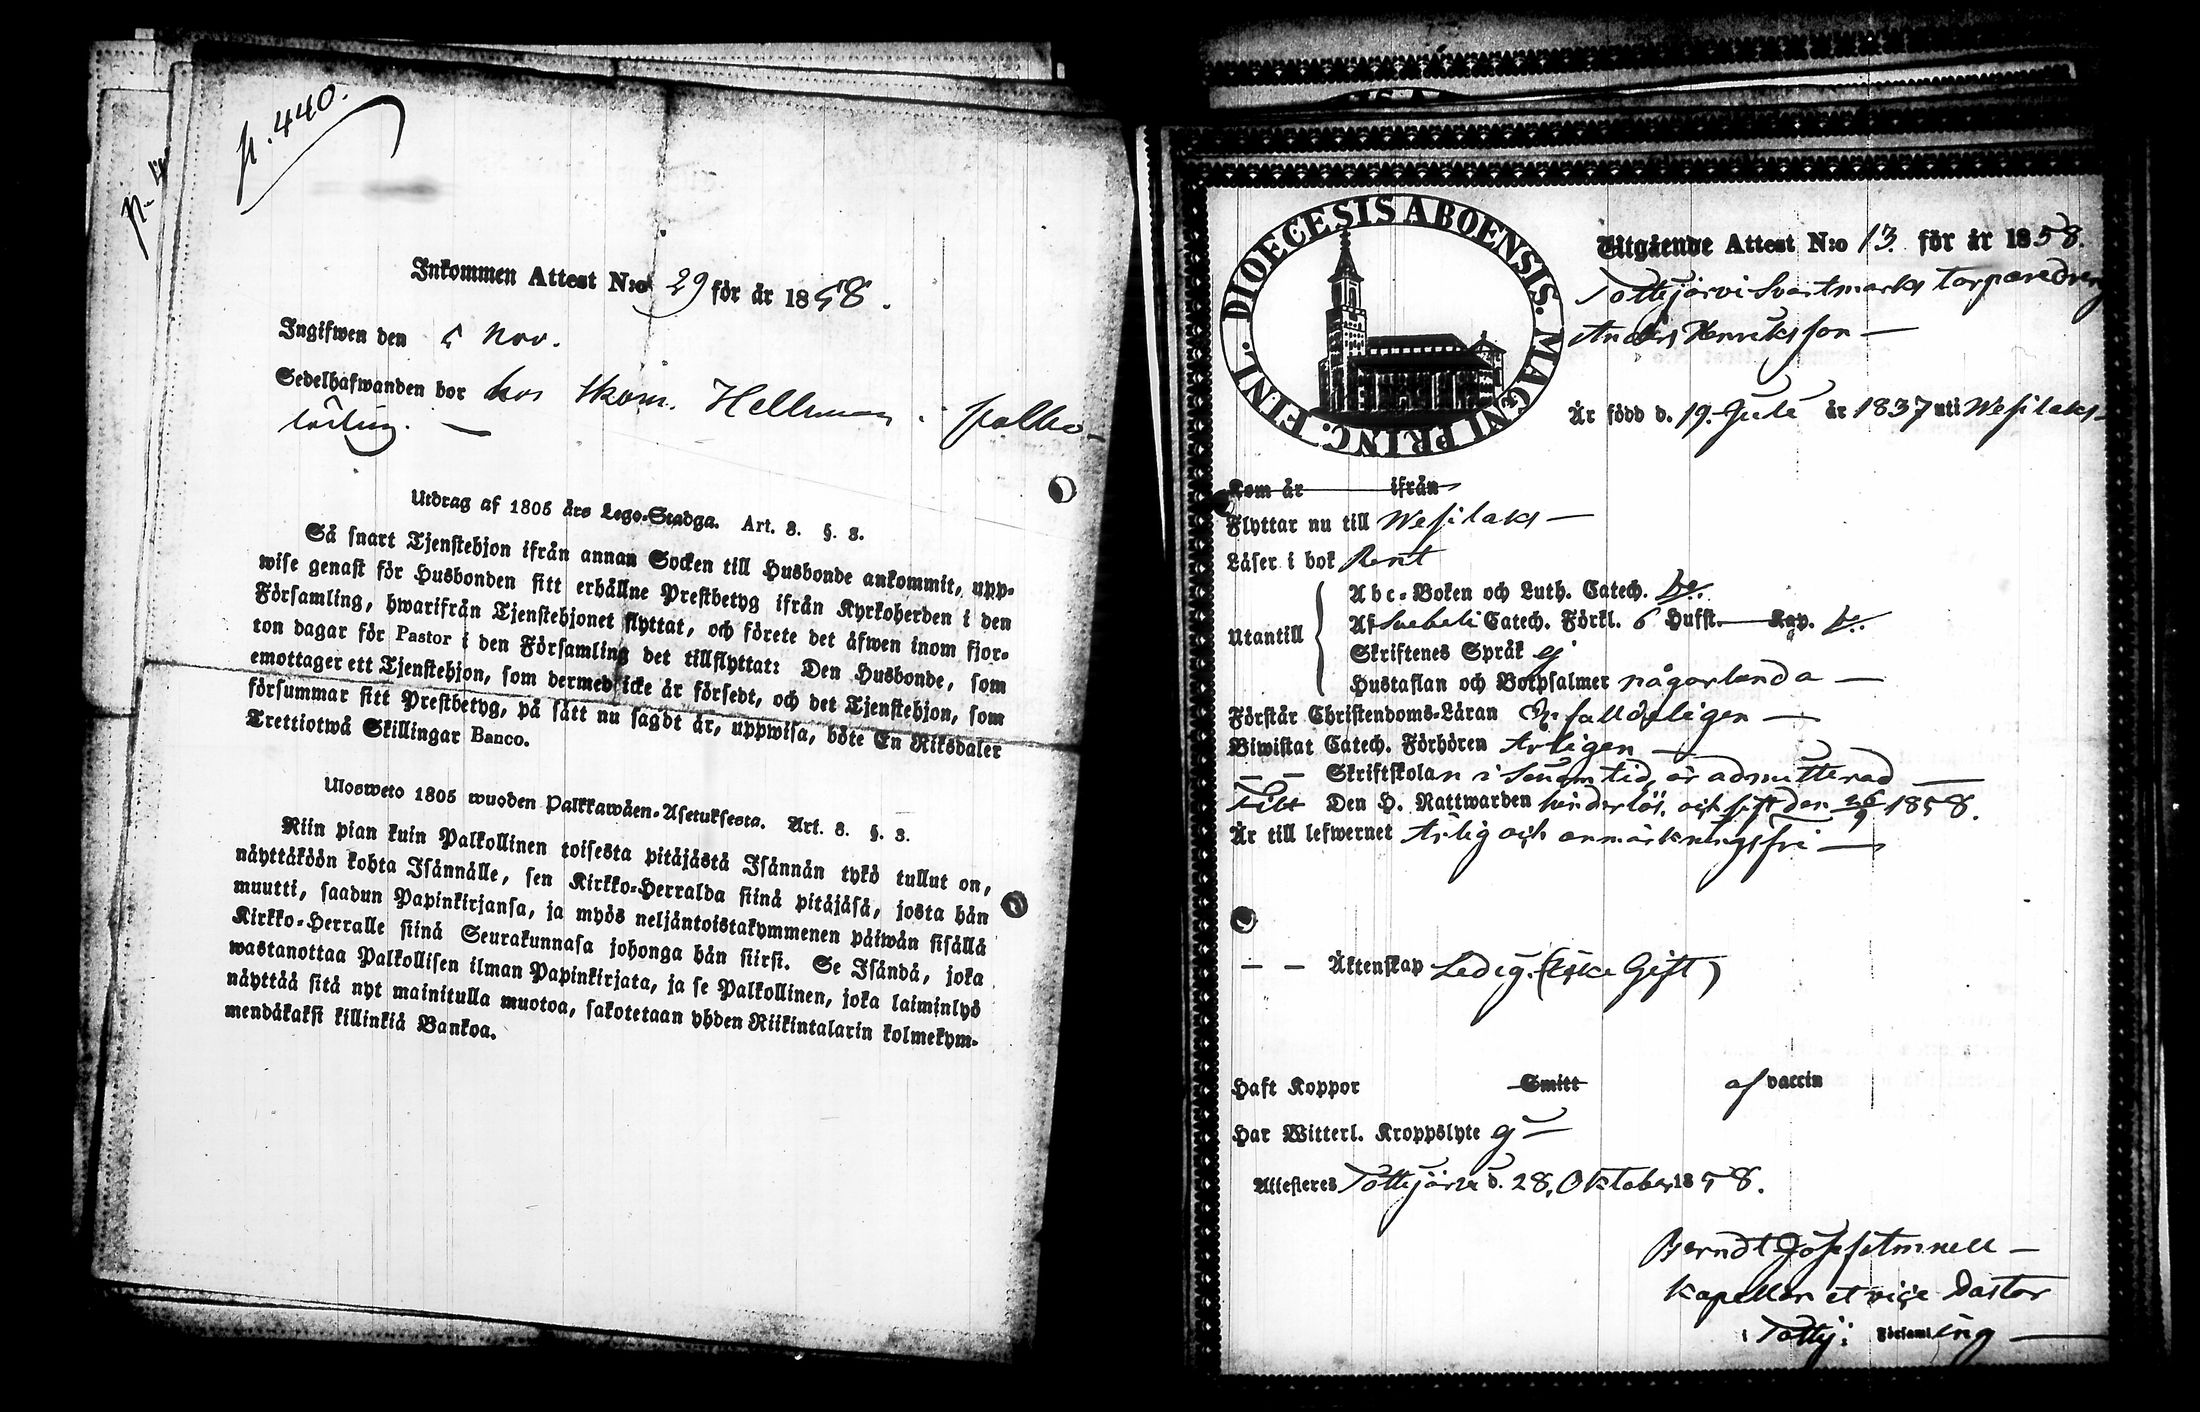 p. 440.
p. 4
Inkommen Attest N:o 29 för år 1858.
Ingifwen den 5 Nov.
Sedelhafwanden bor hos Skom. Hellman i Palho-
Utdrag af 1805 års Lego-Stadga. Art. 8. §. 3.
Så snart Tjenstehjon ifrån annan Socken till Husbonde ankommit, upp-
wise genast för Husbonden sitt erhållne Prestbetyg ifrån Kyrkoherden i den
Församling, hwarifrån Tjenstehjonet flyttat, och förete det äfwen inom fjor-
ton dagar för Pastor i den Församling det tillflyttat: Den Husbonde, som
emottager ett Tjenstehjon, som dermed icke är försedt, och det Tjenstehjon, som
försummar sitt Prestbetyg, på sätt nu sagdt är, uppwisa, böte En Riksdaler
Trettiotwå Skillingar Banco.
Ulosweto 1805 wuoden Palkkawäen-Asetuksesta. Art. 8. §. 3.
Niin pian kuin Palkollinen toisesta pitäjästä Isännän tykö tullut on,
näyttäköön kohta Isännälle, sen Kirkko-Herralda siinä pitäjäsä, josta hän
muutti, saadun Papinkirjansa, ja myös neljäntoistakymmenen päiwän sisällä
Kirkko-Herralle siinä Seurakunnasa johonga hän siirsi. Se Isändä, joka
wastanottaa Palkollisen ilman Papinkirjata, ja se Palkollinen, joka laiminlyö
näyttää sitä nyt mainitulla muotoa, sakotetaan yhden Riikintalarin kolmekym-
mendäkaksi killinkiä Bankoa.
DIOECESIS ABOENSIS. MAGNI PRINC. FINL.
Utgående Attest N:o 13. för år 1858.
Tottijärvi Svartmarks torparedreng
Anders Henriksson —
Är född d. 19. Julii år 1837 uti Wesilaks
Kom år ifrån
Flyttar nu till Wesilaks —
Läser i bok Rent
Utantill
Abc-Boken och Luth. Catech. be.
Af Svebelii Catech. Förkl. 6 Hufst. — Kap. be.
Skriftenes Språk ej
Hustaflan och Botpsalmer någorlunda —
Förstår Christendoms-Läran Enfalldeligen —
Biwistat Catech. Förhören Årligen —
— — Skriftskolan i sinom tid, är admitterad —
Till Den H. Nattwarden hinderlös, och sist den 26/9 1858.
Är till lefwernet Ärlig och anmärkningsfri —
— — Äktenskap Ledig. (Icke Gift)
Haft Koppor Smitt af vaccin
Har Witterl. Kroppslyte ej —
Attesteres Tottijärvi d. 28. Oktober 1858.
Berndt Josef
Kapellan et vice Pastor
i Tottij: Församling —